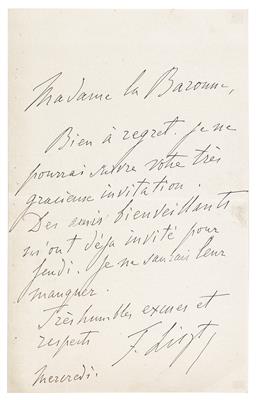 Madame la Baronne,
Bien à regret je ne
pourrai suivre votre très
gracieuse invitation.
Des amis bienveillants
m'ont déja invité pour
Jeudi. Je ne saurais leur
manquer.
Très humbles excuses et
respects
F. Liszt
Mercredi.